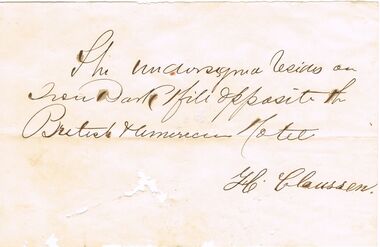 The undersigned resides on
Iron Bark Hill opposite the
British & American Hotel
H. Claussen.